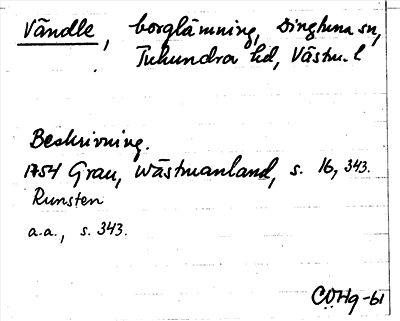 Vändle, borglämning, Dingtuna sn,
Tuhundra hd, Västm. l
Beskrivning.
1754 Grau, Wästmanland, s. 16, 343.
Runsten
a.a., s. 343.
COHg-61